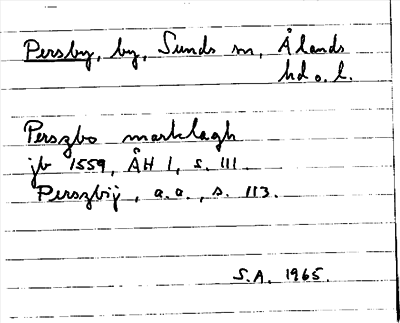 Persby, by, Sunds sn, Ålands
hd o. l.
Perszbo marklagh
jb 1559, ÅH 1, s. 111.
Perszbij, a.a., s. 113.
S.A. 1965.